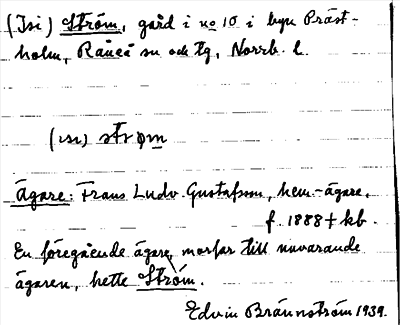 (Isi) Ström, gård i no 10 i byn Präst-
holm, Råneå sn och tg, Norrb. l.
(ısı) strøm
Ägare: Frans Ludv. Gustafsson, hem.-ägare,
f. 1888 + kb.
En föregående ägare, morfar till nuvarande
ägaren, hette Ström.
Edvin Brännström 1939.